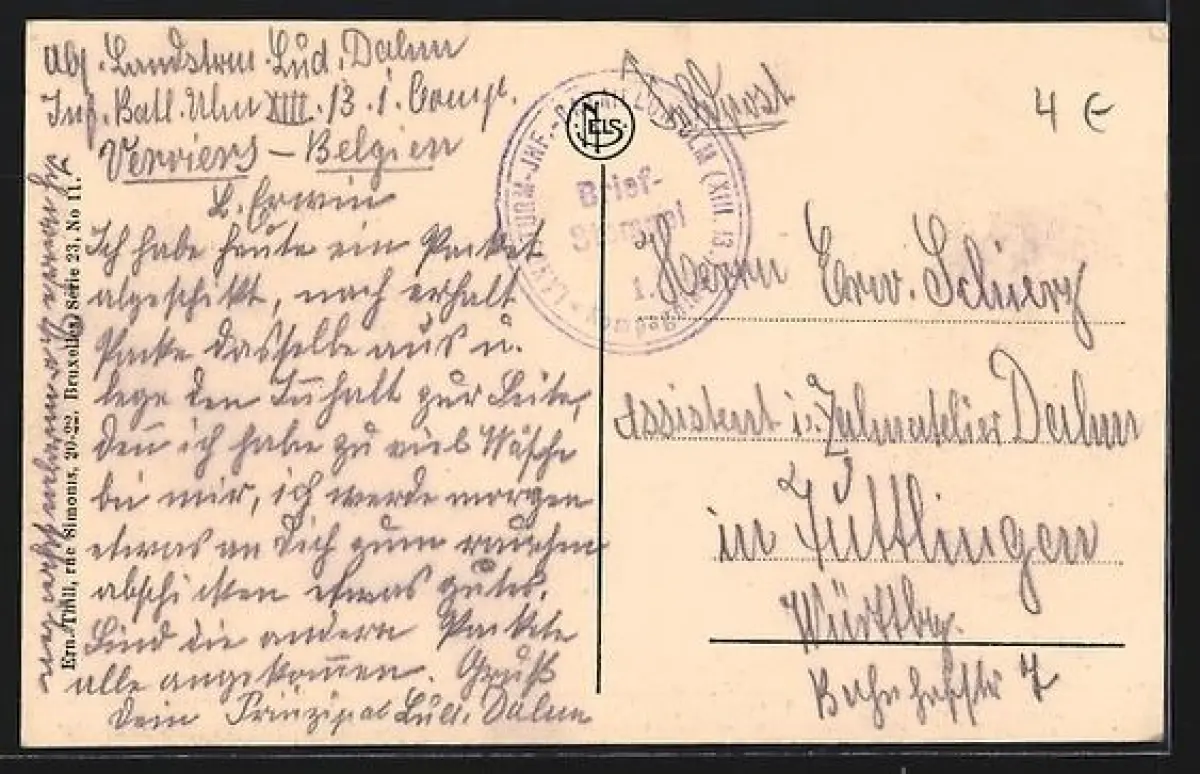 Abs. Landstrm. Lud. Dalm
Inf. Batl. Ulm XIII. 13. 1. Comp.
Verviers – Belgien
L. Erwin
Ich habe heute ein Packet
abgeschikt, nach erhalt
Packe dasselbe aus u.
lege den Inhalt zur Seite,
den ich habe zu viel Wäsche
bei mir, ich werde morgen
etwas an Dich zum rauchen
abschicken etwas gutes.
Sind die andern Packete
alle angekommen. Gruß
Dein Prinzipal Lud. Dalm
Ern. Thill, rue Simonis, 20-22, Bruxelles, Série 23, No 11.
NELS
LANDSTURM-INF.- ULM (XIII. 13.
Brief-
Stempel
1.
Feldpost
4 €
Herrn Erw. Schierz
Assistent i. Zahnatelier Dalm
in Tuttlingen
Württbg.
Bahnhofstr 7